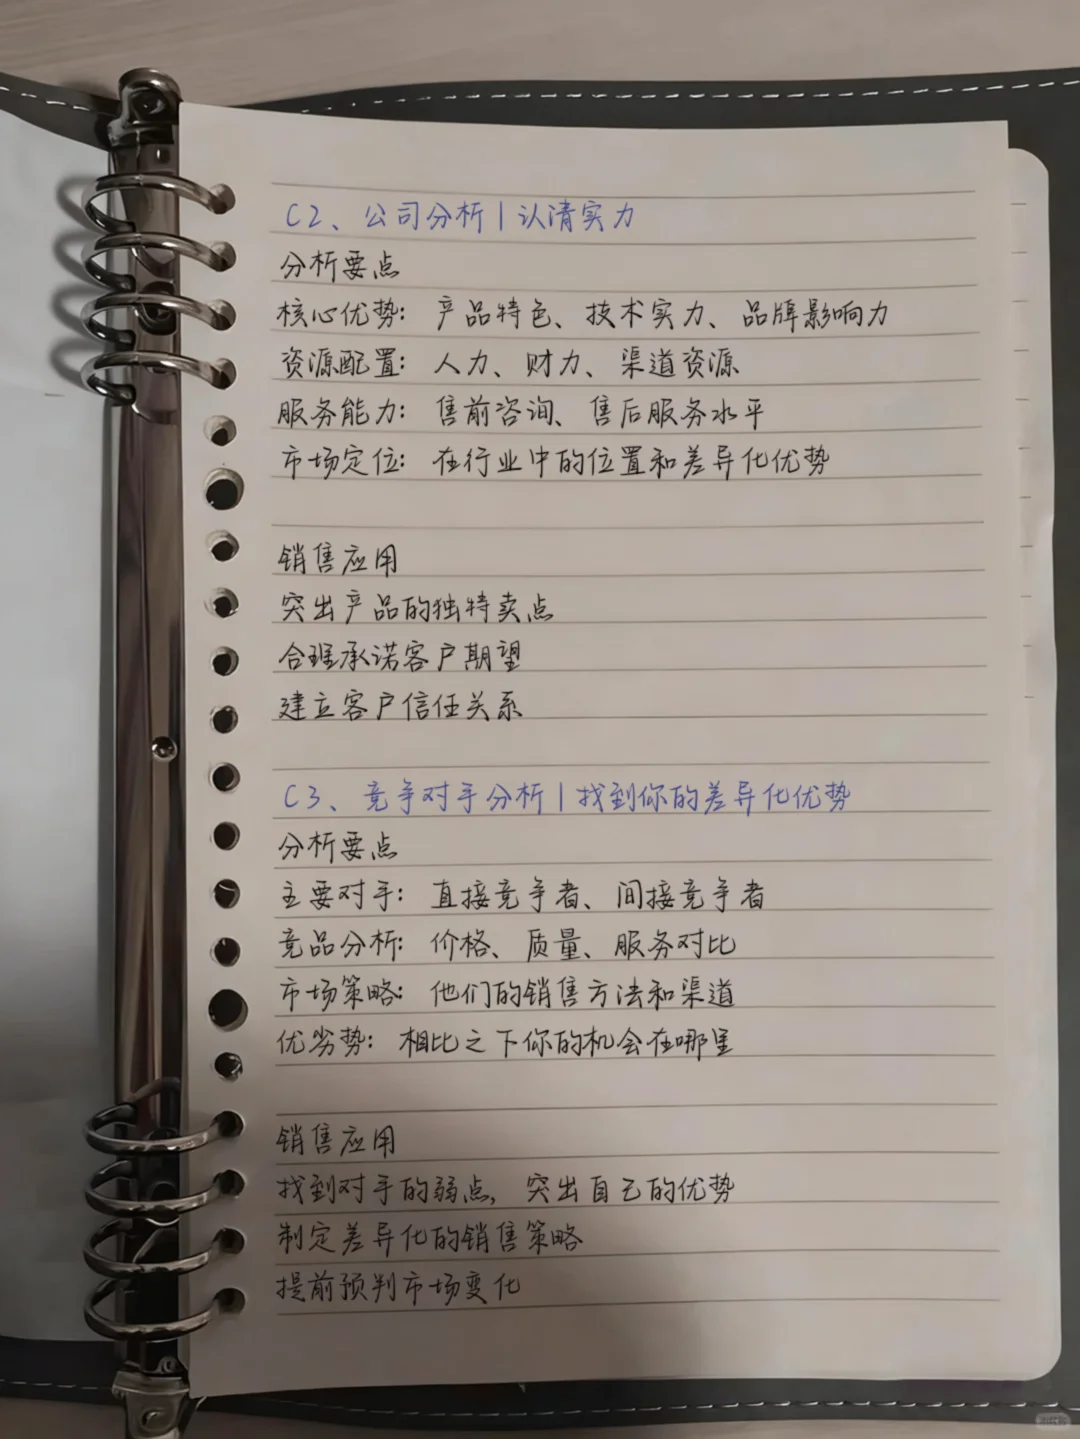 C2、公司分析|认清实力
分析要点
核心优势：产品特色、技术实力、品牌影响力
资源配置：人力、财力、渠道资源
服务能力：售前咨询、售后服务水平
市场定位：在行业中的位置和差异化优势
销售应用
突出产品的独特卖点
合理承诺客户期望
建立客户信任关系
C3、竞争对手分析|找到你的差异化优势
分析要点
主要对手：直接竞争者、间接竞争者
竞品分析：价格、质量、服务对比
市场策略：他们的销售方法和渠道
优劣势：相比之下你的机会在哪里
销售应用
找到对手的弱点，突出自己的优势
制定差异化的销售策略
提前预判市场变化